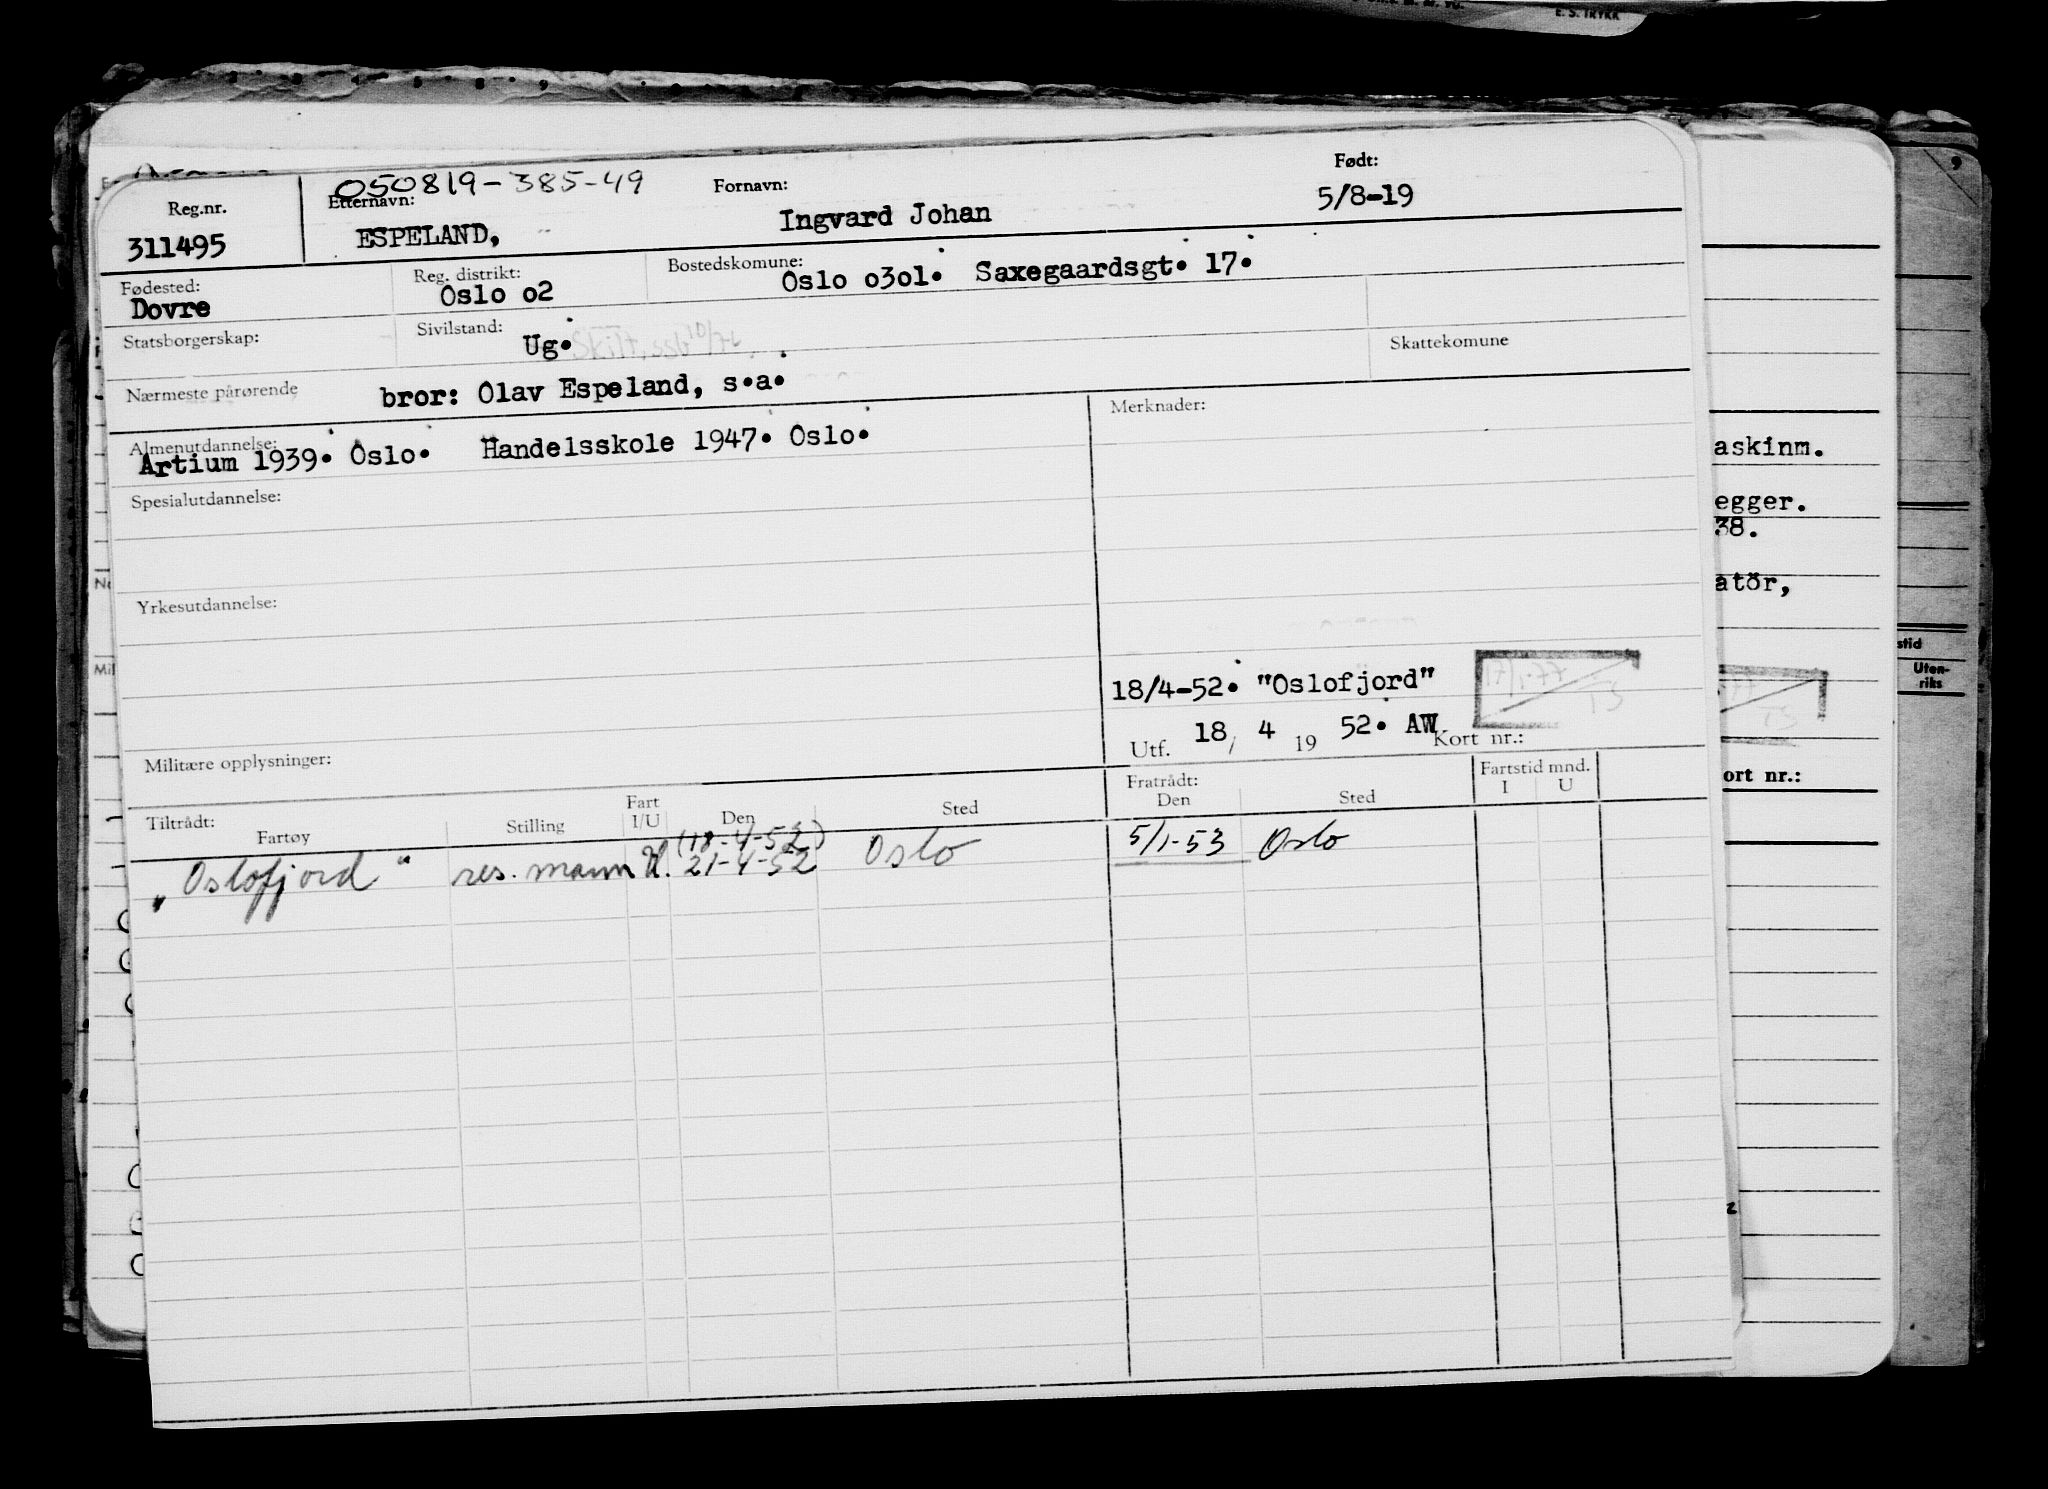 E. S. TRYKK
050819-385-49
Reg.nr. Etternavn: Fornavn: Født:
311495 ESPELAND, Ingvard Johan 5/8-19
Fødested: Reg. distrikt: Bostedskomune:
Dovre Oslo o2 Oslo o3o1. Saxegaardsgt. 17.
Statsborgerskap: Sivilstand: Ug. Skilt, ssb 10/76 Skattekomune
Nærmeste pårørende bror: Olav Espeland, s.a.
Almenutdannelse: Merknader:
Artium 1939. Oslo. Handelsskole 1947. Oslo.
askinm.
Spesialutdannelse:
egger.
38.
Yrkesutdannelse:
atör,
stid
Uten-
riks
18/4-52. "Oslofjord" 17/1-77 TS
Utf. 18/ 4 19 52. AW Kort nr.:
Militære opplysninger:
ort nr.:
Tiltrådt: Fratrådt: Fartstid mnd.
Fartøy Stilling Fart I/U Den Sted Den Sted I U
(18-4-52)
"Oslofjord" res. mann U. 21-4-52 Oslo 5/1-53 Oslo